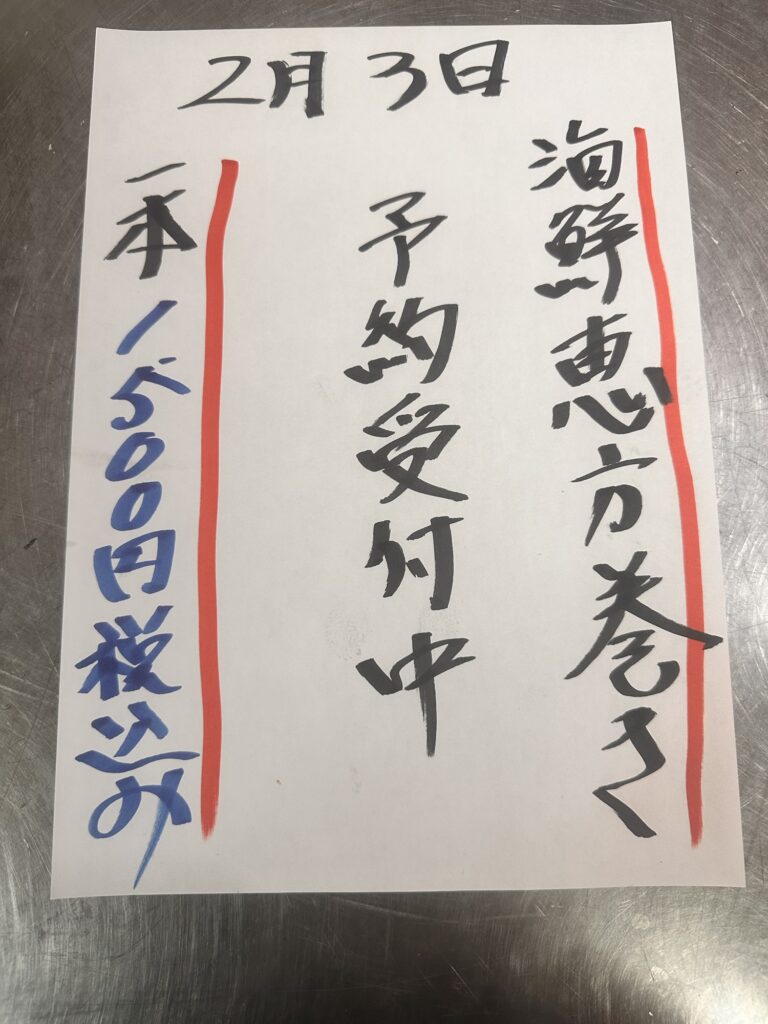 2月3日
海鮮恵方巻き
予約受付中
一本1500円税込み